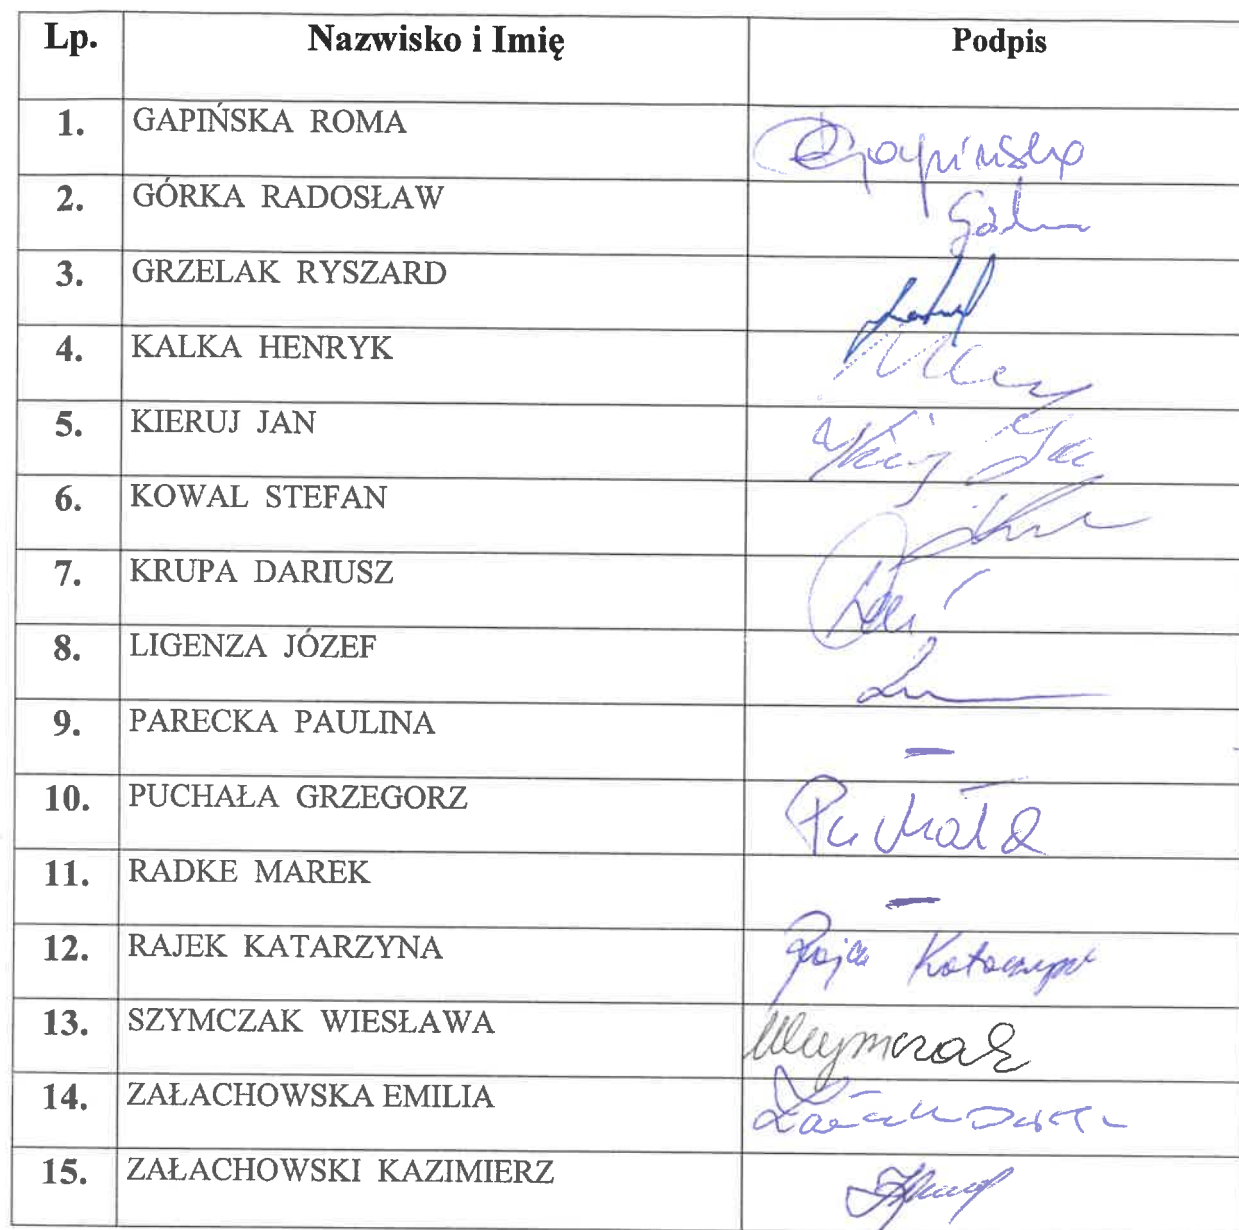 Lp. Nazwisko i Imię Podpis
1. GAPIŃSKA ROMA Gapińska
2. GÓRKA RADOSŁAW
3. GRZELAK RYSZARD
4. KALKA HENRYK
5. KIERUJ JAN
6. KOWAL STEFAN
7. KRUPA DARIUSZ
8. LIGENZA JÓZEF
9. PARECKA PAULINA –
10. PUCHAŁA GRZEGORZ Puchała
11. RADKE MAREK –
12. RAJEK KATARZYNA Rajek Katarzyna
13. SZYMCZAK WIESŁAWA WSzymczak
14. ZAŁACHOWSKA EMILIA
15. ZAŁACHOWSKI KAZIMIERZ